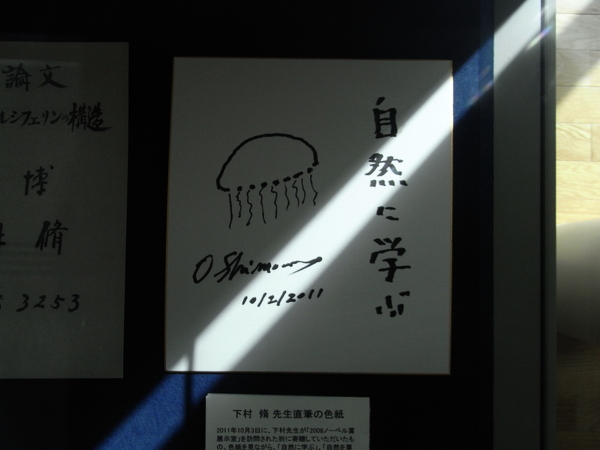 論文
ルシフェリンの構造
博
脩
3253
自然に学ぶ
O Shimomura
10/2/2011
下村 脩 先生直筆の色紙
2011年10月3日に、下村先生が「2008ノーベル賞
展示室」を訪問された折に寄贈していただいたも
の。色紙を見ながら、「自然に学ぶ」、「自然を畏